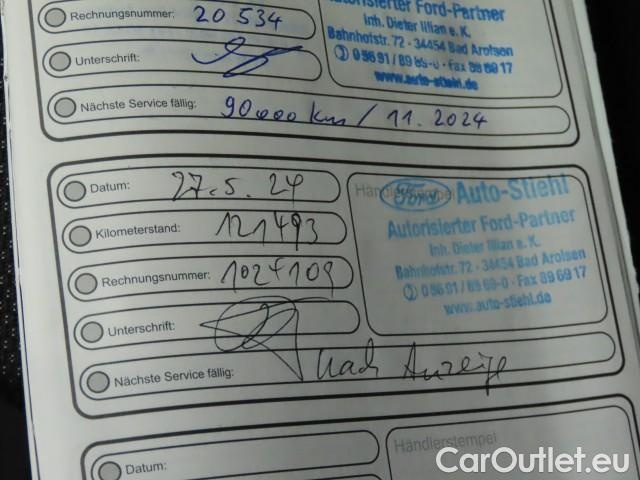 Rechnungsnummer: 20 534
Unterschrift:
Nächste Service fällig: 90000 km / 11.2024
Autorisierter Ford-Partner
Inh. Dieter Illian e. K.
Bahnhofstr. 72 · 34454 Bad Arolsen
www.auto-stiehl.de
Datum: 27.5.24
Kilometerstand: 121493
Rechnungsnummer:
Unterschrift:
Nächste Service fällig: nach Anzeige
Händlerstempel
Ford Auto-Stiehl
Autorisierter Ford-Partner
Inh. Dieter Illian e. K.
Bahnhofstr. 72 · 34454 Bad Arolsen
www.auto-stiehl.de
Datum:
Händlerstempel
CarOutlet.eu